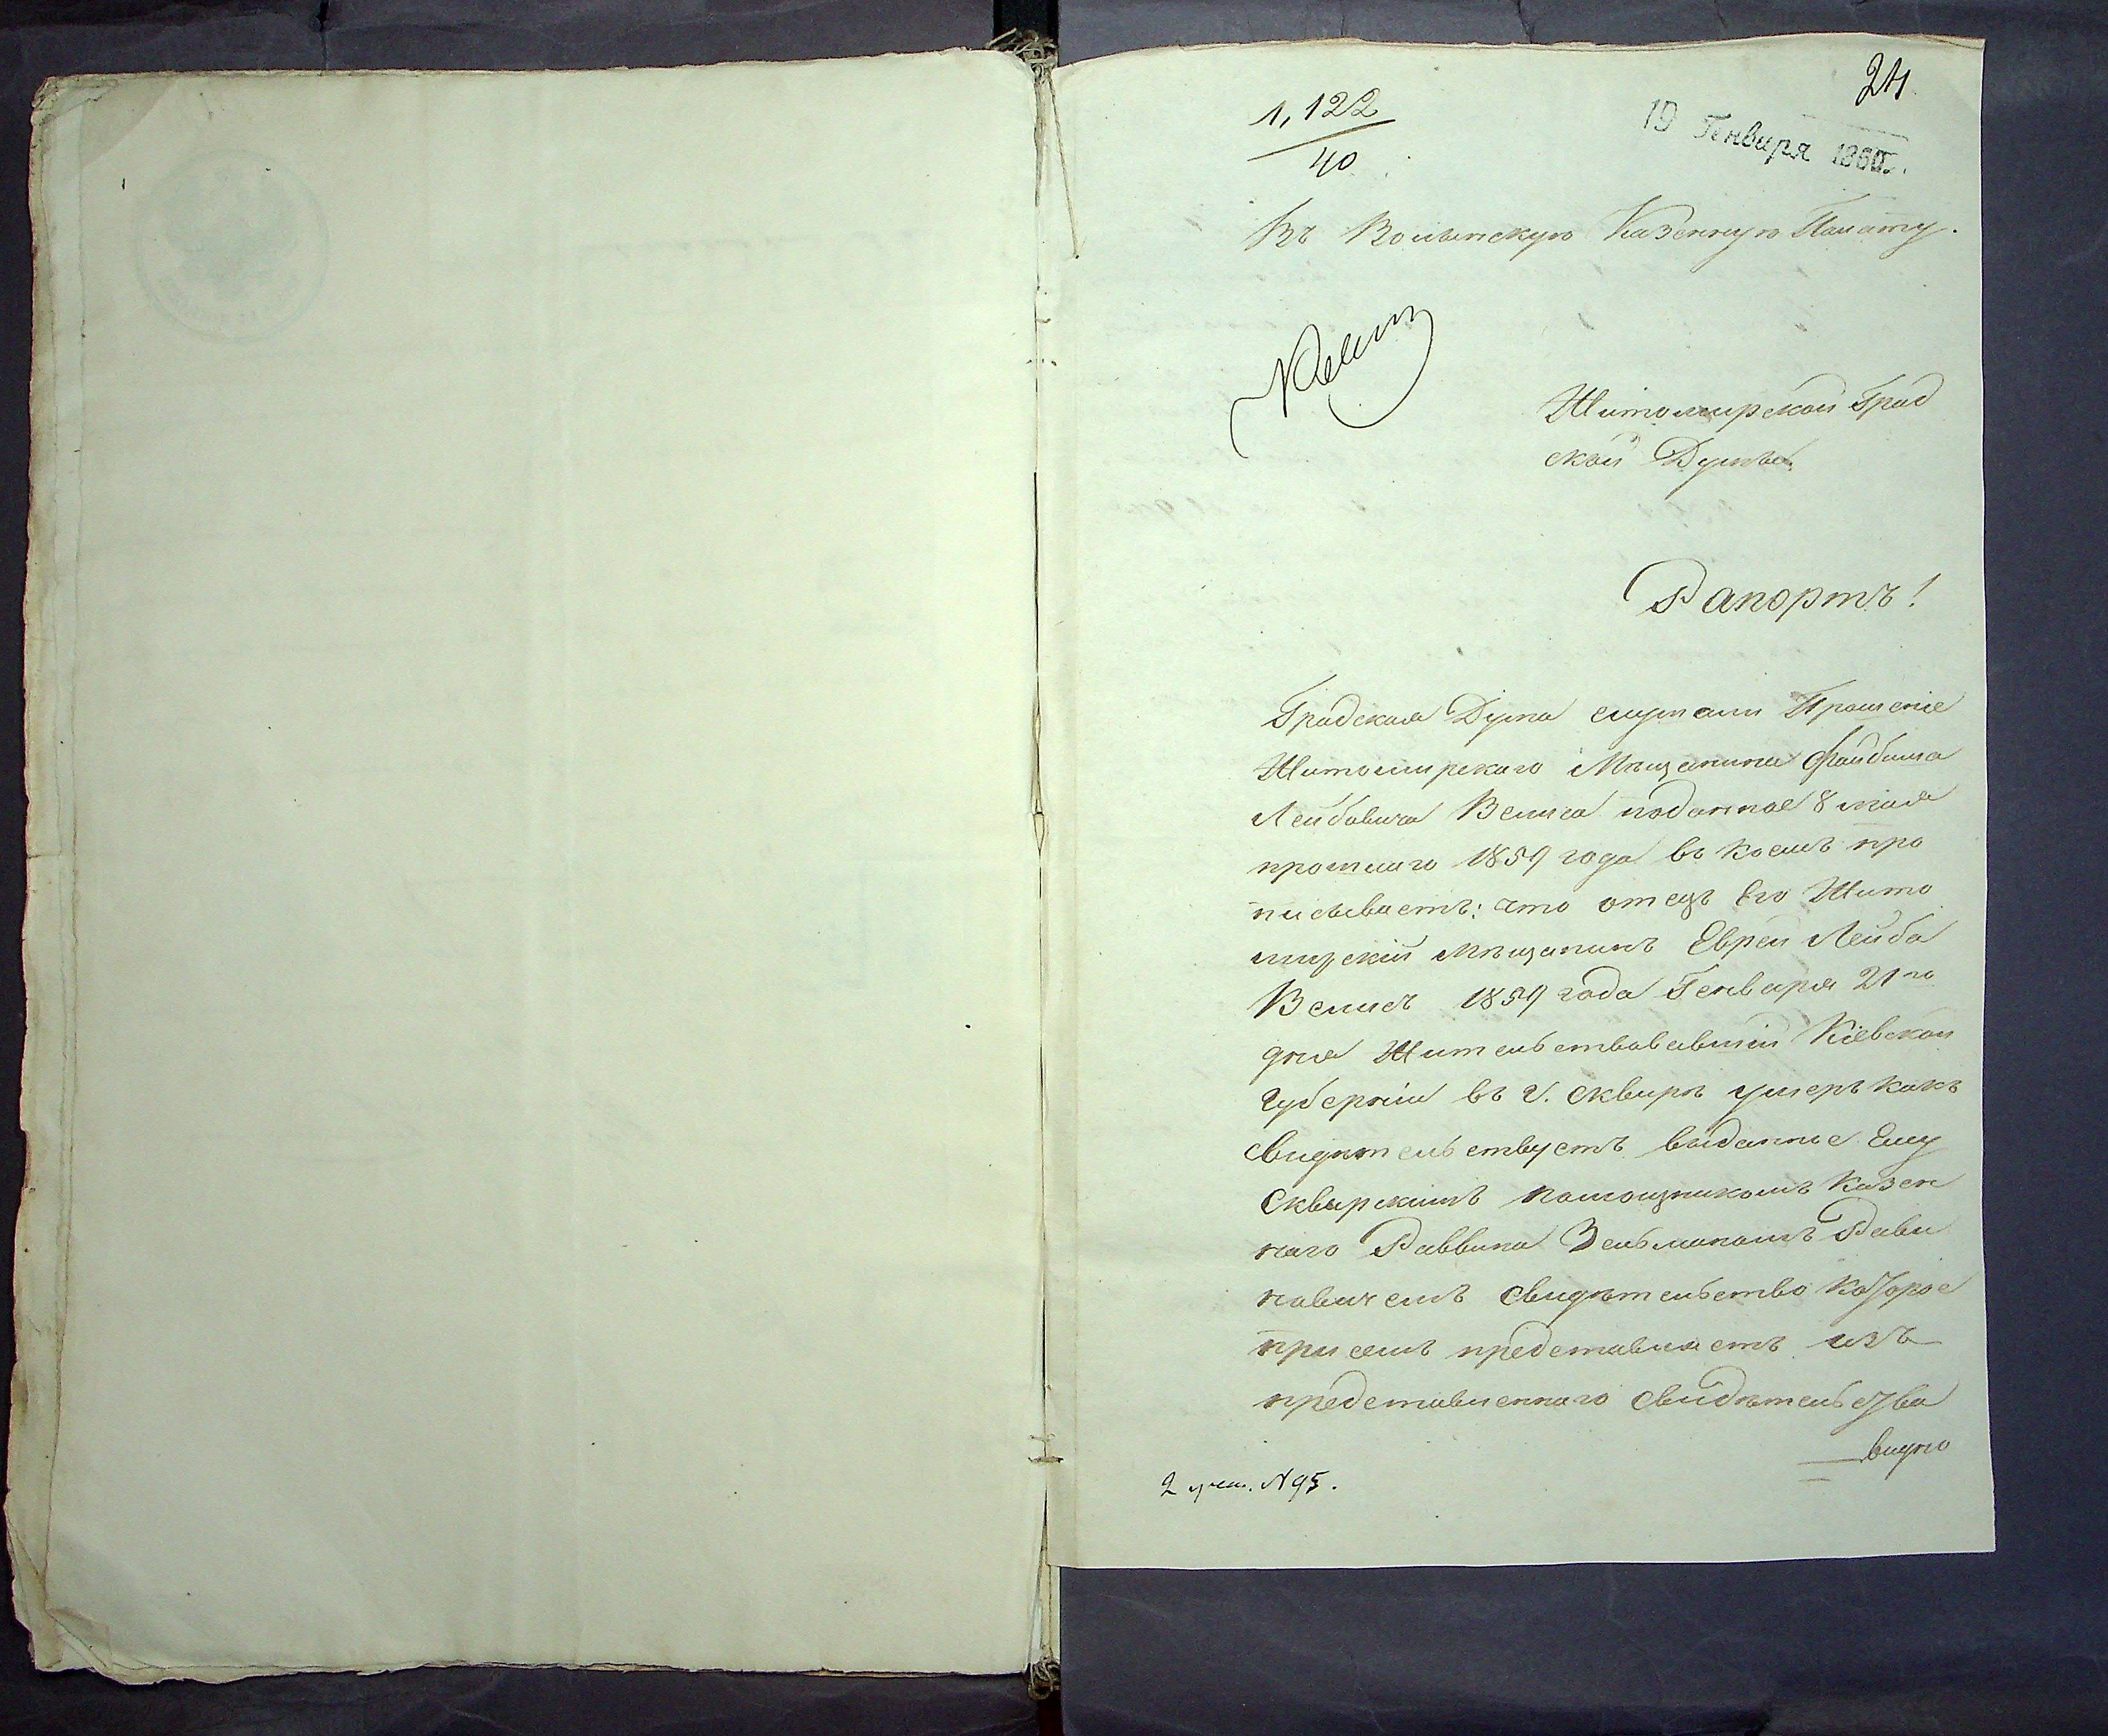 24.
1,122
40
19 Генваря 1860.
Въ Волынскую Казенную Палату.
Житомирской Град
ской Думы
Рапортъ!
Градская Дума слушали Прошеніе
Житомирскаго Мѣщанина Файбиша
Лейбовича поданное 8 мая
прошлаго 1859 года въ коемъ про
писываетъ: что отецъ Его Жито
мирскій мѣщанинъ Еврей Лейба
1859 года Генваря 21го
дня Жительствовавшій Кіевской
Губерніи въ г. Сквирѣ умеръ какъ
свидѣтельствуетъ выданное Ему
Сквирскимъ помощникомъ Казен
наго Раввина Зельманомъ Раби
новичемъ свидѣтельство которое
при семъ представляетъ изъ
представленнаго свидѣтельства
видно
2 N 95.